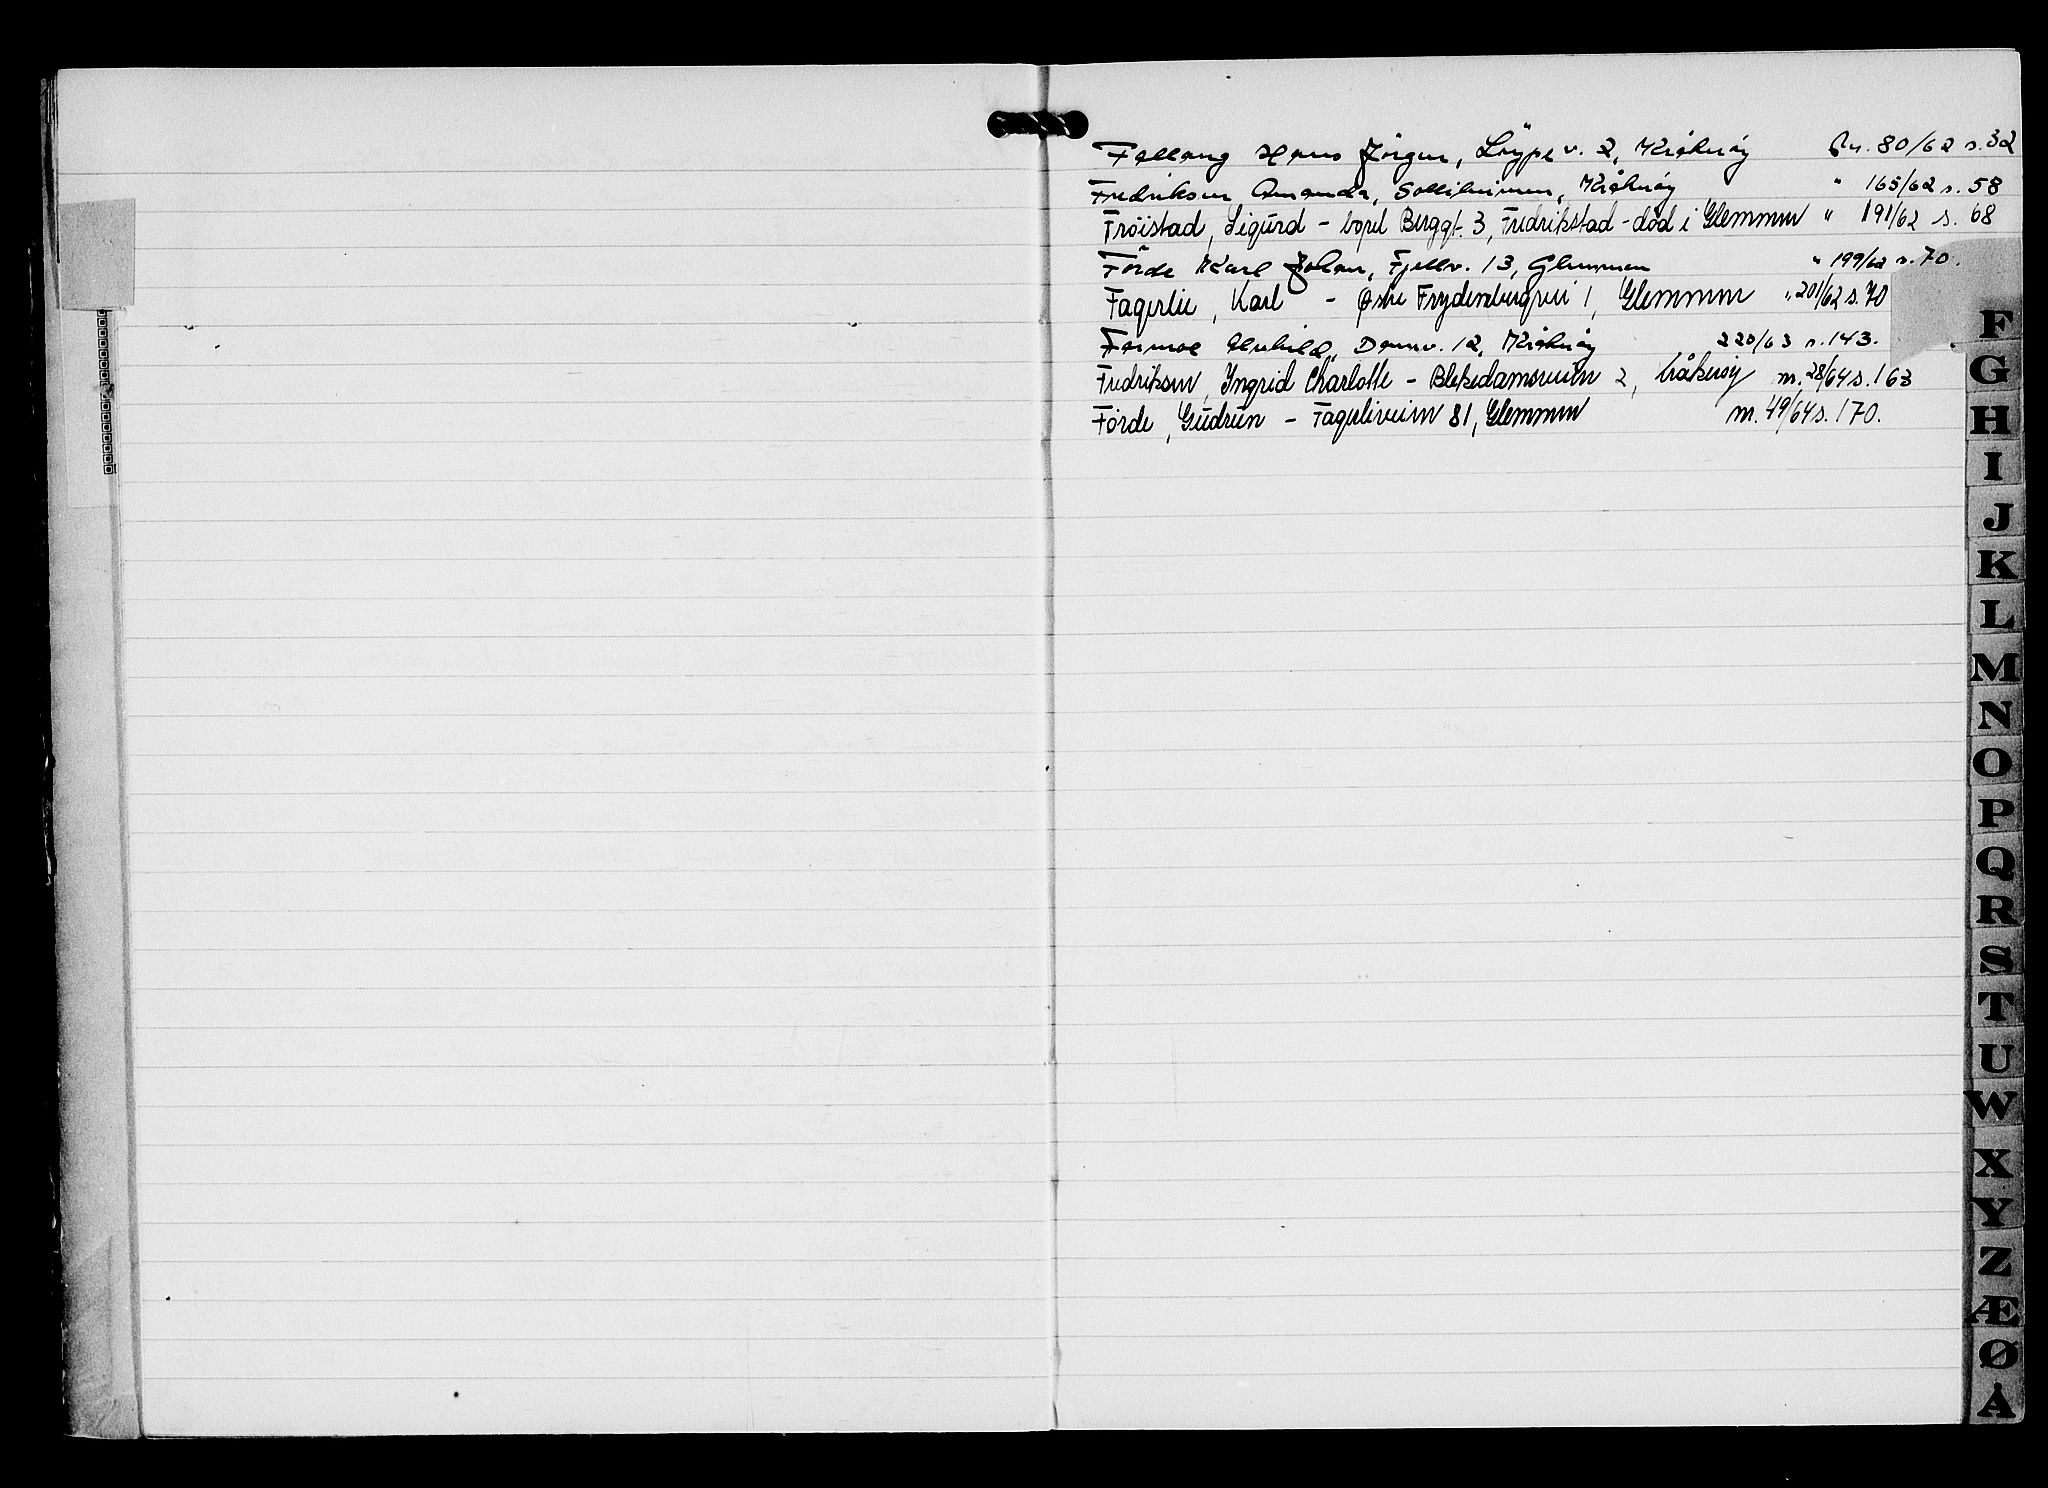 Fallang Hans Jörgen, Löype v. 2, Kråkeröy Nr. 80/62 s. 32
Fredriksen Amanda, Solliheimen, Kråkeröy " 165/62 s. 58
Fröistad, Sigurd - bopel Berggt. 3, Fredrikstad - död i Glemmen " 191/62 s. 68
Förde Karl Johan, Fjellv. 13, Glemmen " 199/62 s. 70.
Fagerlie, Karl - Østre Frydenbergvei 1, Glemmen " 201/62 s. 70
Damv. 12, Kråkeröy 220/63 s. 143.
Fredriksen, Ingrid Charlotte - Blekedamsveien 2, Kråkeröy nr. 28/64 s. 163
Förde, Gudrun - Fagerliveien 81, Glemmen nr. 49/64 s. 170.
F
G
H
I
J
K
L
M
N
O
P
Q
R
S
T
U
W
X
Y
Z
Æ
Ø
Å